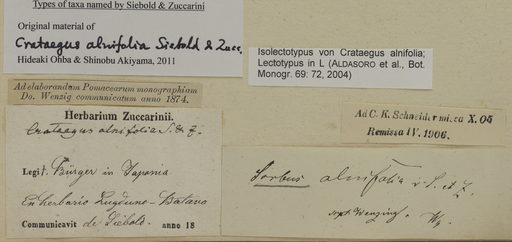 Types of taxa named by Siebold & Zuccarini
Original material of
Crataegus alnifolia Siebold & Zucc.
Hideaki Ohba & Shinobu Akiyama, 2011
Isolectotypus von Crataegus alnifolia;
Lectotypus in L (ALDASORO et al., Bot.
Monogr. 69: 72, 2004)
Ad elaborandum Pomacearum monographiam
Do. Wenzig communicatum anno 1874.
Ad C. K. Schneider missa X. 05
Remissa IV. 1906.
Herbarium Zuccarinii.
Crataegus alnifolia S. & Z.
Legit. Bürger in Japonia
Ex herbario Lugduno-Batavo
Communicavit de Siebold. anno 18
Sorbus alnifolia S. et Z.
Wenzig. Wg.